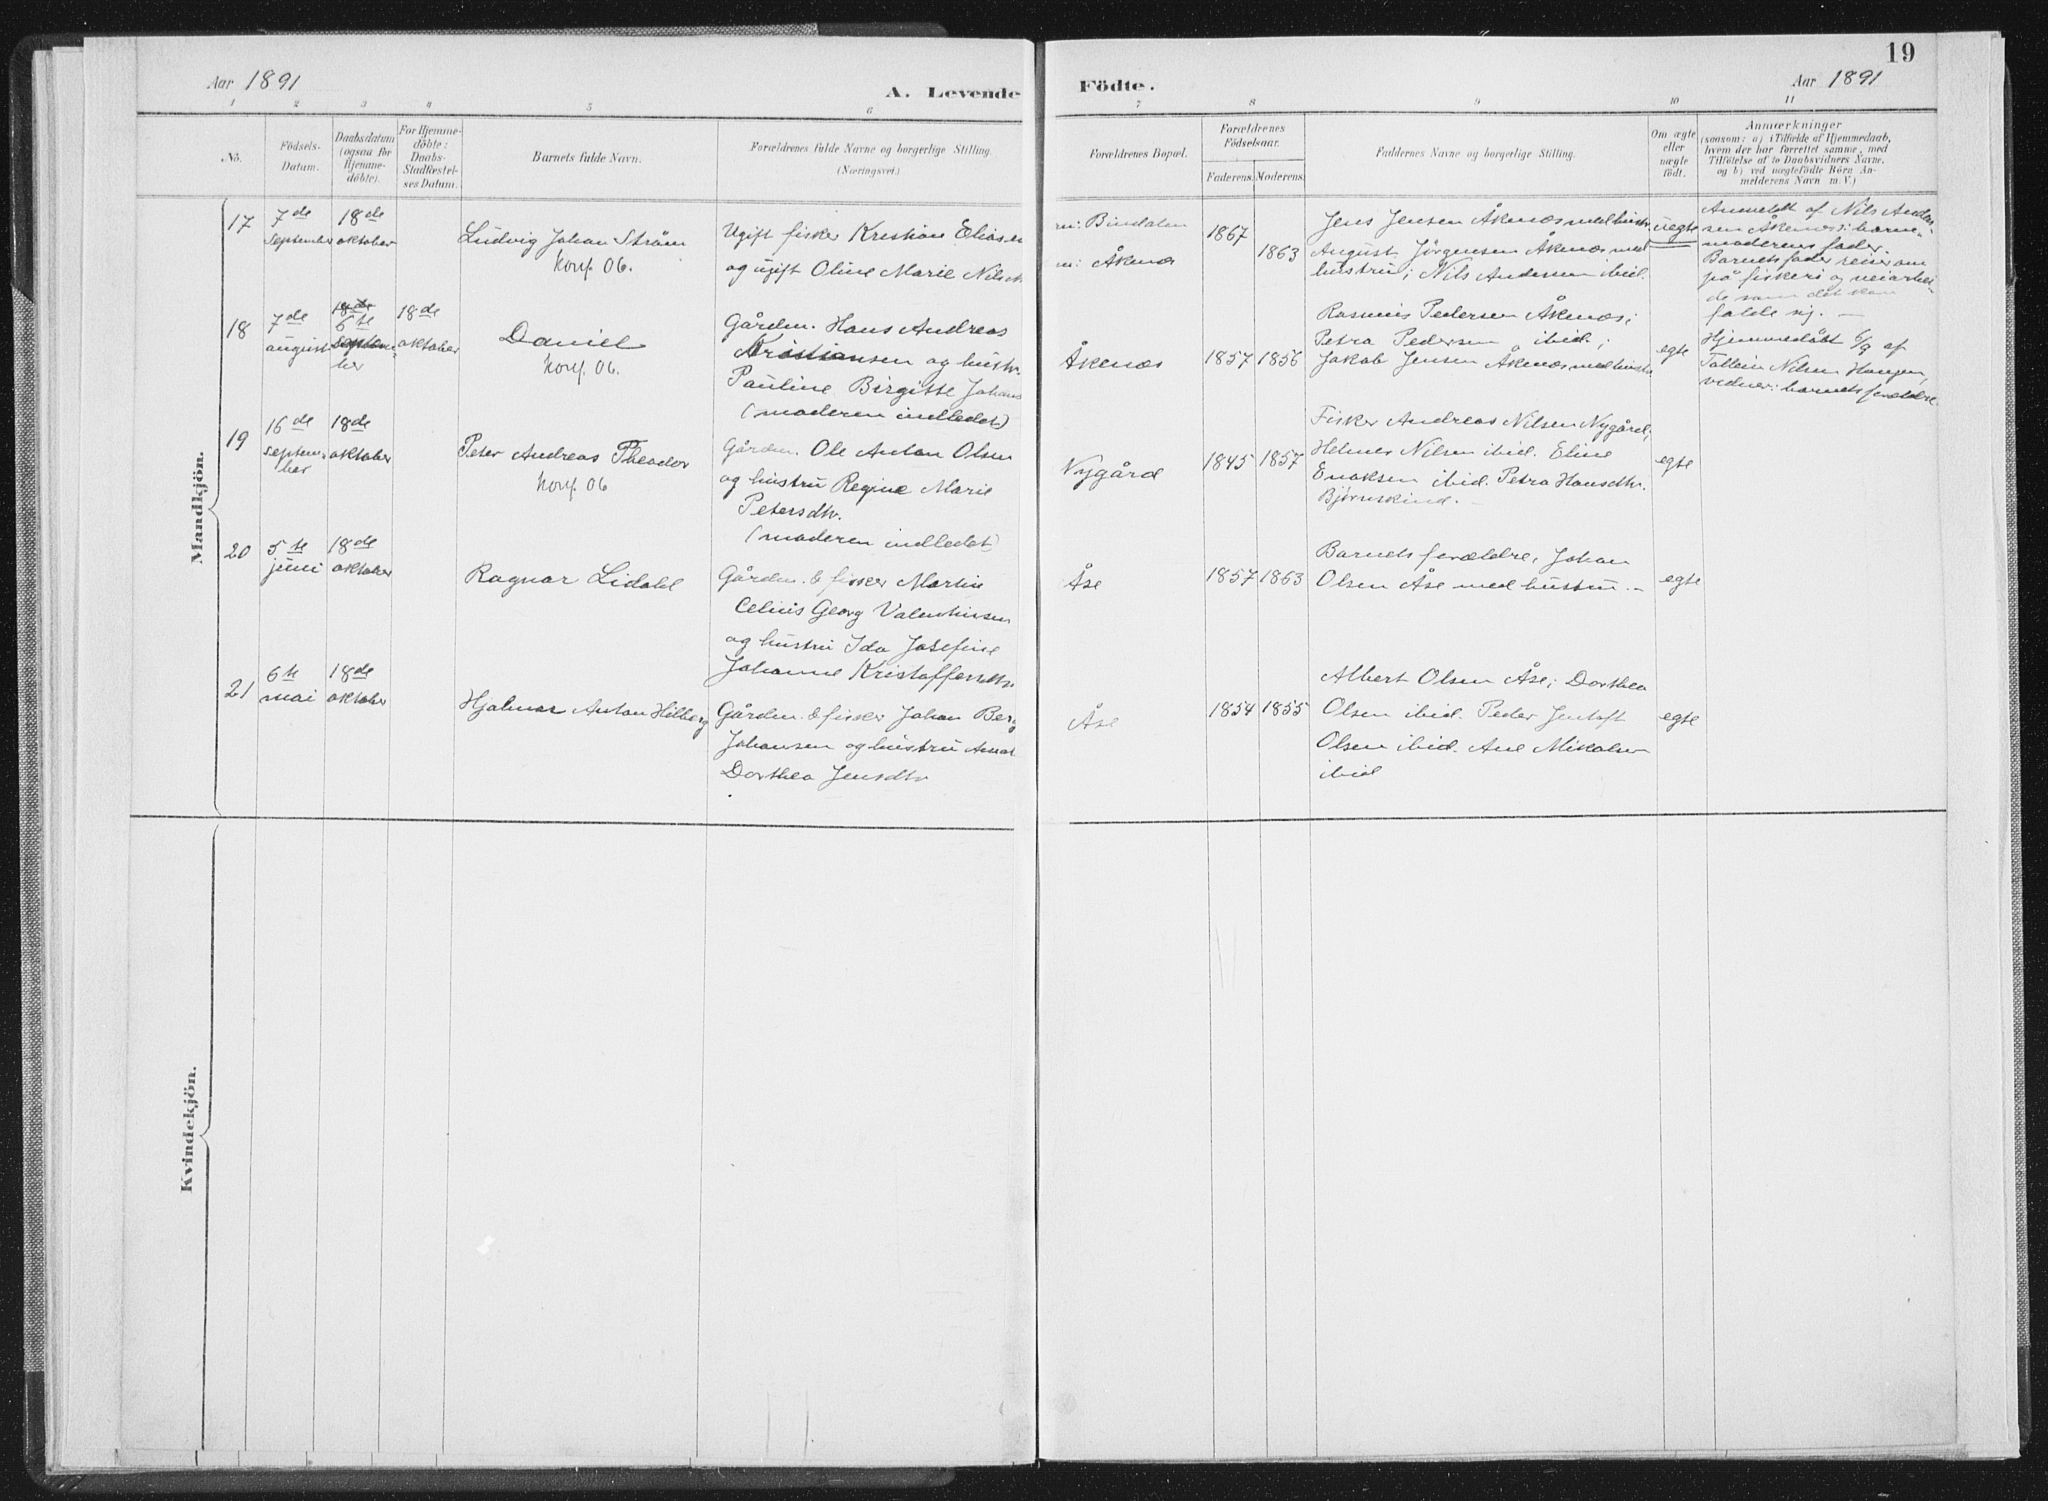 19
Aar 1891
A. Levende
Födte.
Aar 1891
1 2 3 4 5 6 7 8 9 10 11
No.
Födsels-
Datum.
Daabsdatum
(ogsaa for
Hjemme-
döbte).
For Hjemme-
döbte:
Daabs-
Stadfæstel-
ses Datum.
Barnets fulde Navn.
Forældrenes fulde Navne og borgerlige Stilling.
(Næringsvei.)
Forældrenes Bopæl.
Forældrenes
Födselsaar.
Faderens. Moderens.
Faddernes Navne og borgerlige Stilling.
Om ægte
eller
uægte
födt.
Anmærkninger
(saasom: a) i Tilfælde af Hjemmedaab,
hvem der har forrettet samme, med
Tilföielse af to Daabsvidners Navne.
og b) ved uægtefödte Börn An-
melderens Navn m. V.)
Mandkjön.
17
7de
september
18de
oktober
Ludvig Johan Strøm
Konf. 06.
Ugift fisker Kristian Eliasen
og ugift Oline Marie Nilsdtr
Bindalen
Åkenæs
1867
1863
Jens Jensen Åkenæs med hustru
August Jörgensen Åkenæs med
hustru; Nils Andersen ibid.
uegte
Anmeldt af Nils Ander-
sen Åkenæs: barne-
moderens fader.
Barnets fader reiser om
på fiskeri og veiarbei-
de som det kan
falde sig. —
18
7de
august
18de
6te
septem-
ber
18de
oktober
Daniel
Konf. 06.
Gården. Hans Andreas
Kristiansen og hustr.
Pauline Birgitte Johans
(moderen indledet)
Åkenæs
1857 1856
Rasmus Pedersen Åkenæs;
Petra Pedersen ibid;
Jakob Jensen Åkenæs med hustru
egte
Hjemmedøbt 6/9 af
Tollein Nilsen Haugen,
vidner: barnets forældre.
19
16de
septem-
ber
18de
oktober
Peter Andreas Theodor
Konf. 06
Gården. Ole Anton Olsen
og hustru Regine Marie
Petersdtr.
(moderen indledet)
Nygård
1845 1857
Fisker Andreas Nilsen Nygård;
Helmer Nilsen ibid. Eline
Enoksen ibid. Petra Hansdtr.
Bjørnskind. —
egte
20
5te
juni
18de
oktober
Ragnar Lidahl
Gården. & fisker Martin
Celius Georg Valentinsen
og hustru Ida Josefine
Johanne Kristoffersdtr.
Åse
1857 1863
Barnets forældre, Johan
Olsen Åse med hustru. —
egte
21
6te
mai
18de
oktober
Hjalmar Anton Hilberg
Gården. & fisker Johan Berg
Johansen og hustru Anna
Dorthea Jensdtr
Åse
1854 1855
Albert Olsen Åse; Dorthea
Olsen ibid. Peder Jentoft
Olsen ibid. Ane Mikalsen
ibid
egte
Kvindekjön.